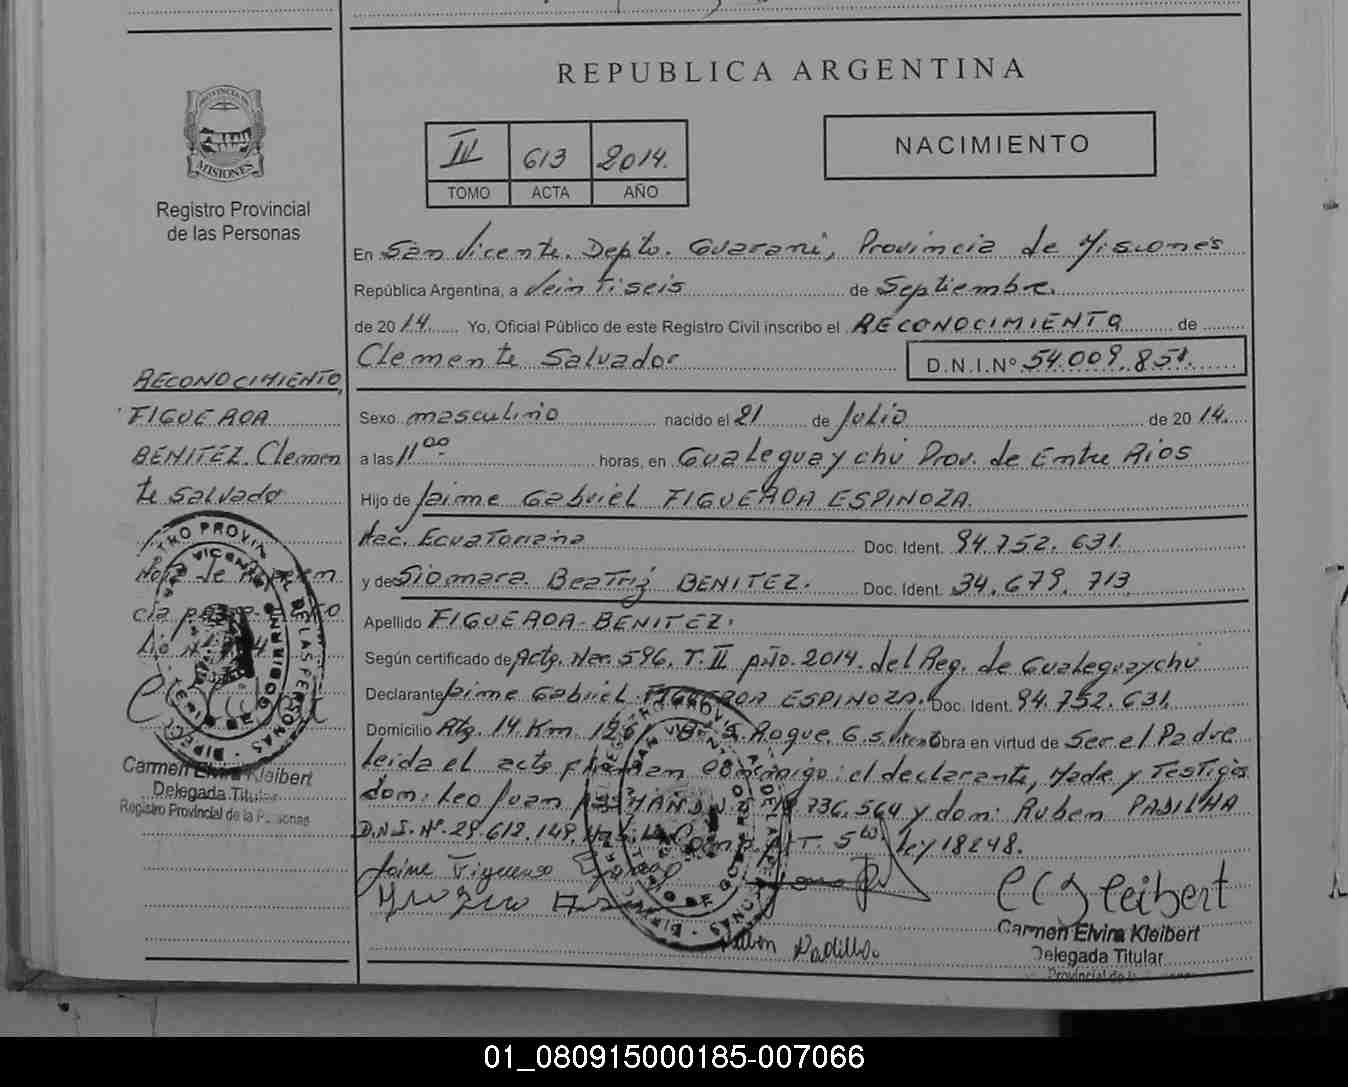 REPUBLICA ARGENTINA
PROVINCIA DE
MISIONES
Registro Provincial
de las Personas
II 613 2014.
TOMO ACTA AÑO
NACIMIENTO
En San Vicente. Depto. Guarani, Provincia de Misiones
República Argentina, a Veintiseis de Septiembre.
de 2014. Yo, Oficial Público de este Registro Civil inscribo el RECONOCIMIENTO de
Clemente Salvador D.N.I.Nº 54.009.851.
RECONOCIMIENTO,
FIGUEROA
BENITEZ. Clemen
te Salvado
Sexo masculino nacido el 21 de Julio de 2014.
a las 11,00 horas, en Gualeguaychú Prov. de Entre Rios
Hijo de Jaime Gabriel FIGUEROA ESPINOZA.
Nac. Ecuatoriana Doc. Ident. 94.752.631.
y de Siomara Beatriz BENITEZ. Doc. Ident. 34.679.713
Apellido FIGUEROA-BENITEZ.
Según certificado de Acta. Nac. 596. T. II Año. 2014. del Reg. de Gualeguaychú
Declarante Jaime Gabriel FIGUEROA ESPINOZA. Doc. Ident. 94.752.631.
Domicilio Rta. 14 Km. S. Roque. G. S. obra en virtud de Ser el Padre
leida el acta conmigo: el declarante, Madre y Testigos
dom: Leo Juan 736.564 y dom: Ruben PADILHA
D.N.I. Nº. 29.612.149. T. 5to. ley 18248.
Jaime Figueroa
Ruben Padilha
Carmen Elvira Kleibert
Delegada Titular
Registro Provincial de la Personas
Kleibert
Carmen Elvira Kleibert
Delegada Titular
Provincial de la
01_080915000185-007066